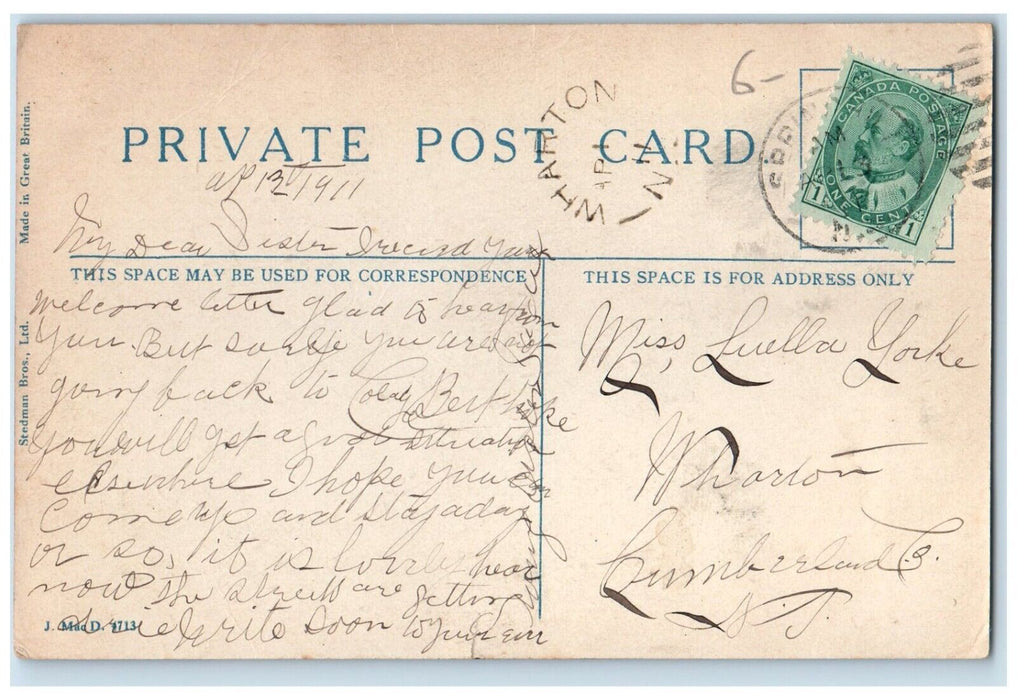 PRIVATE POST CARD
Made in Great Britain.
Stedman Bros., Ltd.
6-
WHARTON
AP 1
N
CANADA POSTAGE
1 ONE CENT 1
ap 12 1911
THIS SPACE MAY BE USED FOR CORRESPONDENCE
My Dear Sister I received your
welcome letter glad to hear from
you. But so you are not
going back to But hope
you will get a situation
elsewhere I hope you can
Come up and stay a day
or so, it is lovely hear
now the streets are getting
write soon to your
J. MacD. 1713
THIS SPACE IS FOR ADDRESS ONLY
Miss, Luella Yorke
Wharton
Cumberland Co.
N.S.